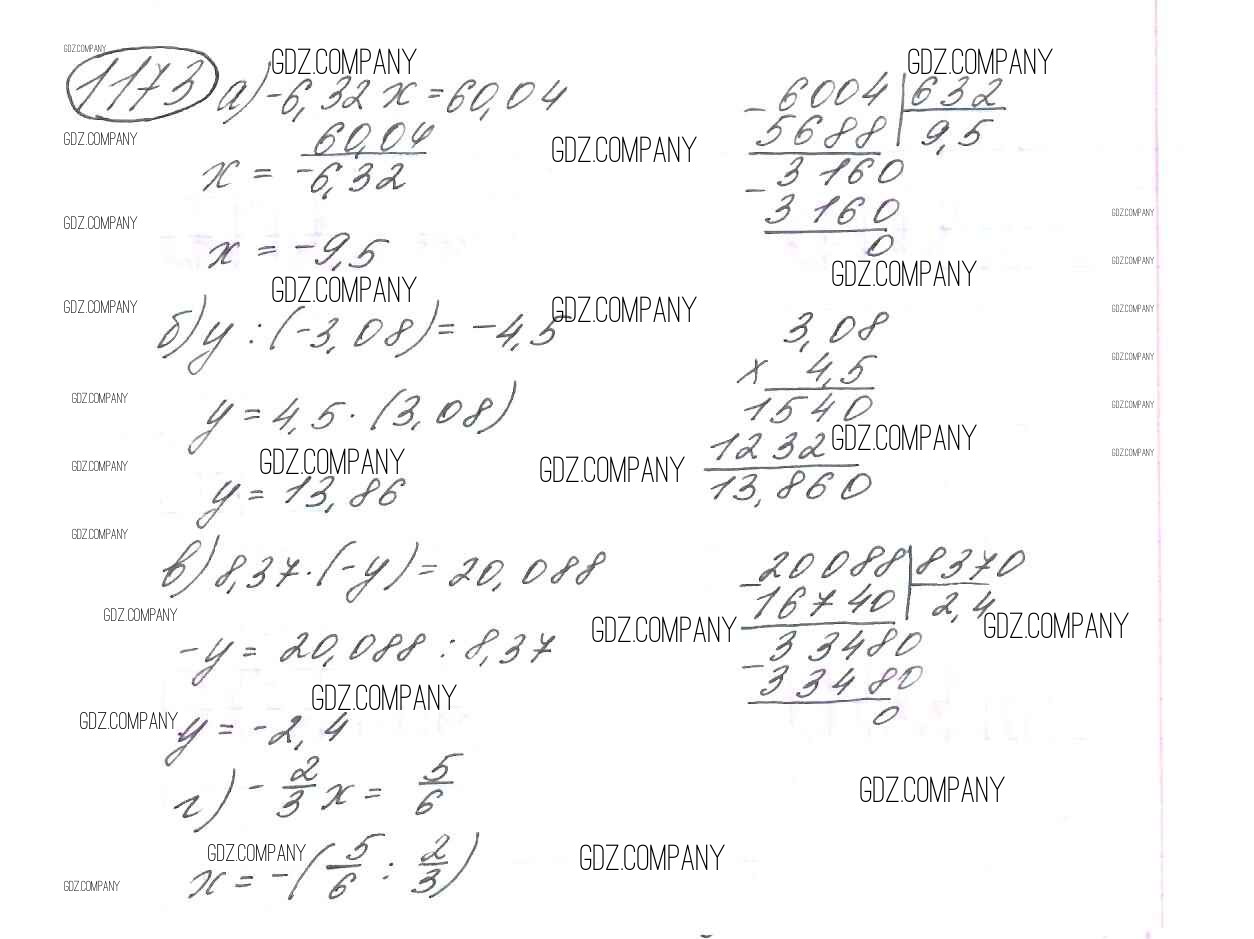 GDZ.COMPANY
1173 а) -6,32 x = 60,04
GDZ.COMPANY
GDZ.COMPANY
x = 60,04 / -6,32
GDZ.COMPANY
x = -9,5
GDZ.COMPANY
GDZ.COMPANY
GDZ.COMPANY
GDZ.COMPANY
б) y : (-3,08) = -4,5
GDZ.COMPANY
y = 4,5 · (3,08)
GDZ.COMPANY
GDZ.COMPANY
y = 13,86
GDZ.COMPANY
в) 8,37 · (-y) = 20,088
GDZ.COMPANY
-y = 20,088 : 8,37
GDZ.COMPANY
GDZ.COMPANY
y = -2,4
г) - 2/3 x = 5/6
GDZ.COMPANY
x = -(5/6 : 2/3)
GDZ.COMPANY
GDZ.COMPANY
- 6004 | 632
5688 | 9,5
GDZ.COMPANY
3160
- 3160
0
GDZ.COMPANY
GDZ.COMPANY
3,08
x 4,5
1540
1232
GDZ.COMPANY
GDZ.COMPANY
13,860
- 20088 | 8370
16740 | 2,4
GDZ.COMPANY
GDZ.COMPANY
33480
- 33480
0
GDZ.COMPANY
GDZ.COMPANY
GDZ.COMPANY
GDZ.COMPANY
GDZ.COMPANY
GDZ.COMPANY
GDZ.COMPANY
GDZ.COMPANY